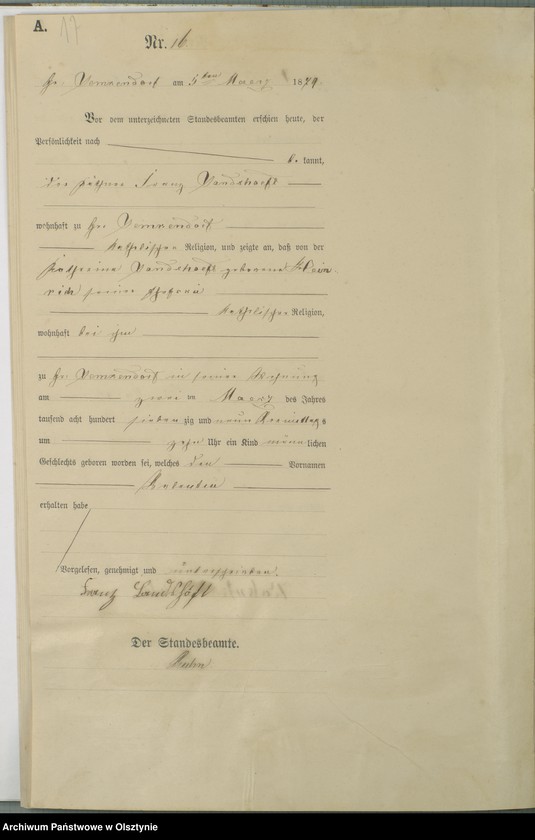 A. 17
Nr. 16
Gr. am 5ten Maerz 1879.
Vor dem unterzeichneten Standesbeamten erschien heute, der
Persönlichkeit nach
be kannt,
der Käthner Franz Landshoeft
wohnhaft zu Gr.
katholischer Religion, und zeigte an, daß von der
Catharina Landshoeft geborene Hein
rich seiner Ehefrau
katholischer Religion,
wohnhaft bei ihm
zu Gr. in seiner Wohnung
am zwei ten Maerz des Jahres
tausend acht hundert sieben zig und neun Vormittags
um zehn Uhr ein Kind männlichen
Geschlechts geboren worden sei, welches den Vornamen
erhalten habe
Vorgelesen, genehmigt und unterschrieben.
Franz Landshöft
Der Standesbeamte.
Archiwum Państwowe w Olsztynie